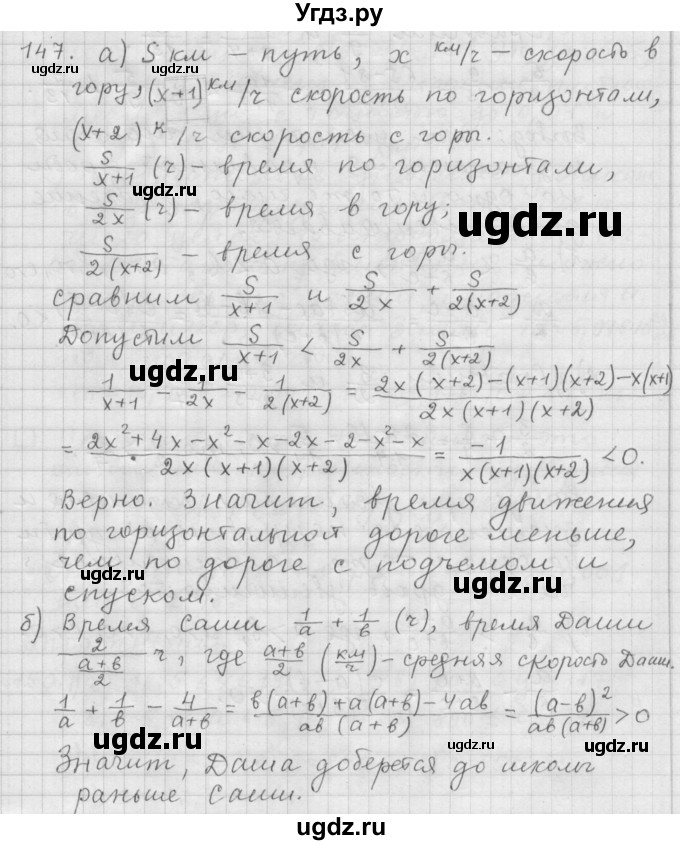 Угдз.ру
147. а) S км – путь, x км/ч – скорость в
гору, (x+1) км/ч скорость по горизонтали,
(x+2) к/ч скорость с горы.
S/(x+1) (ч) – время по горизонтали,
S/2x (ч) – время в гору;
S/2(x+2) – время с горы.
сравним S/(x+1) и S/2x + S/2(x+2)
Допустим S/(x+1) < S/2x + S/2(x+2)
1/(x+1) – 1/2x – 1/2(x+2) = (2x(x+2)–(x+1)(x+2)–x(x+1))/(2x(x+1)(x+2))
= (2x²+4x–x²–x–2x–2–x²–x)/(2x(x+1)(x+2)) = –1/(x(x+1)(x+2)) < 0.
Верно. Значит, время движения
по горизонтальной дороге меньше,
чем по дороге с подъемом и
спуском.
б) Время Саши 1/a + 1/в (ч), время Даши
2/((a+в)/2) ч, где (a+в)/2 (км/ч) – средняя скорость Даши.
1/a + 1/в – 4/(a+в) = (в(a+в)+a(a+в)–4aв)/(aв(a+в)) = (a–в)²/(aв(a+в)) > 0
Значит, Даша доберется до школы
раньше Саши.
ugdz.ru
ugdz.ru
ugdz.ru
ugdz.ru
ugdz.ru
ugdz.ru
ugdz.ru
ugdz.ru
ugdz.ru
ugdz.ru
ugdz.ru
ugdz.ru
ugdz.ru
ugdz.ru